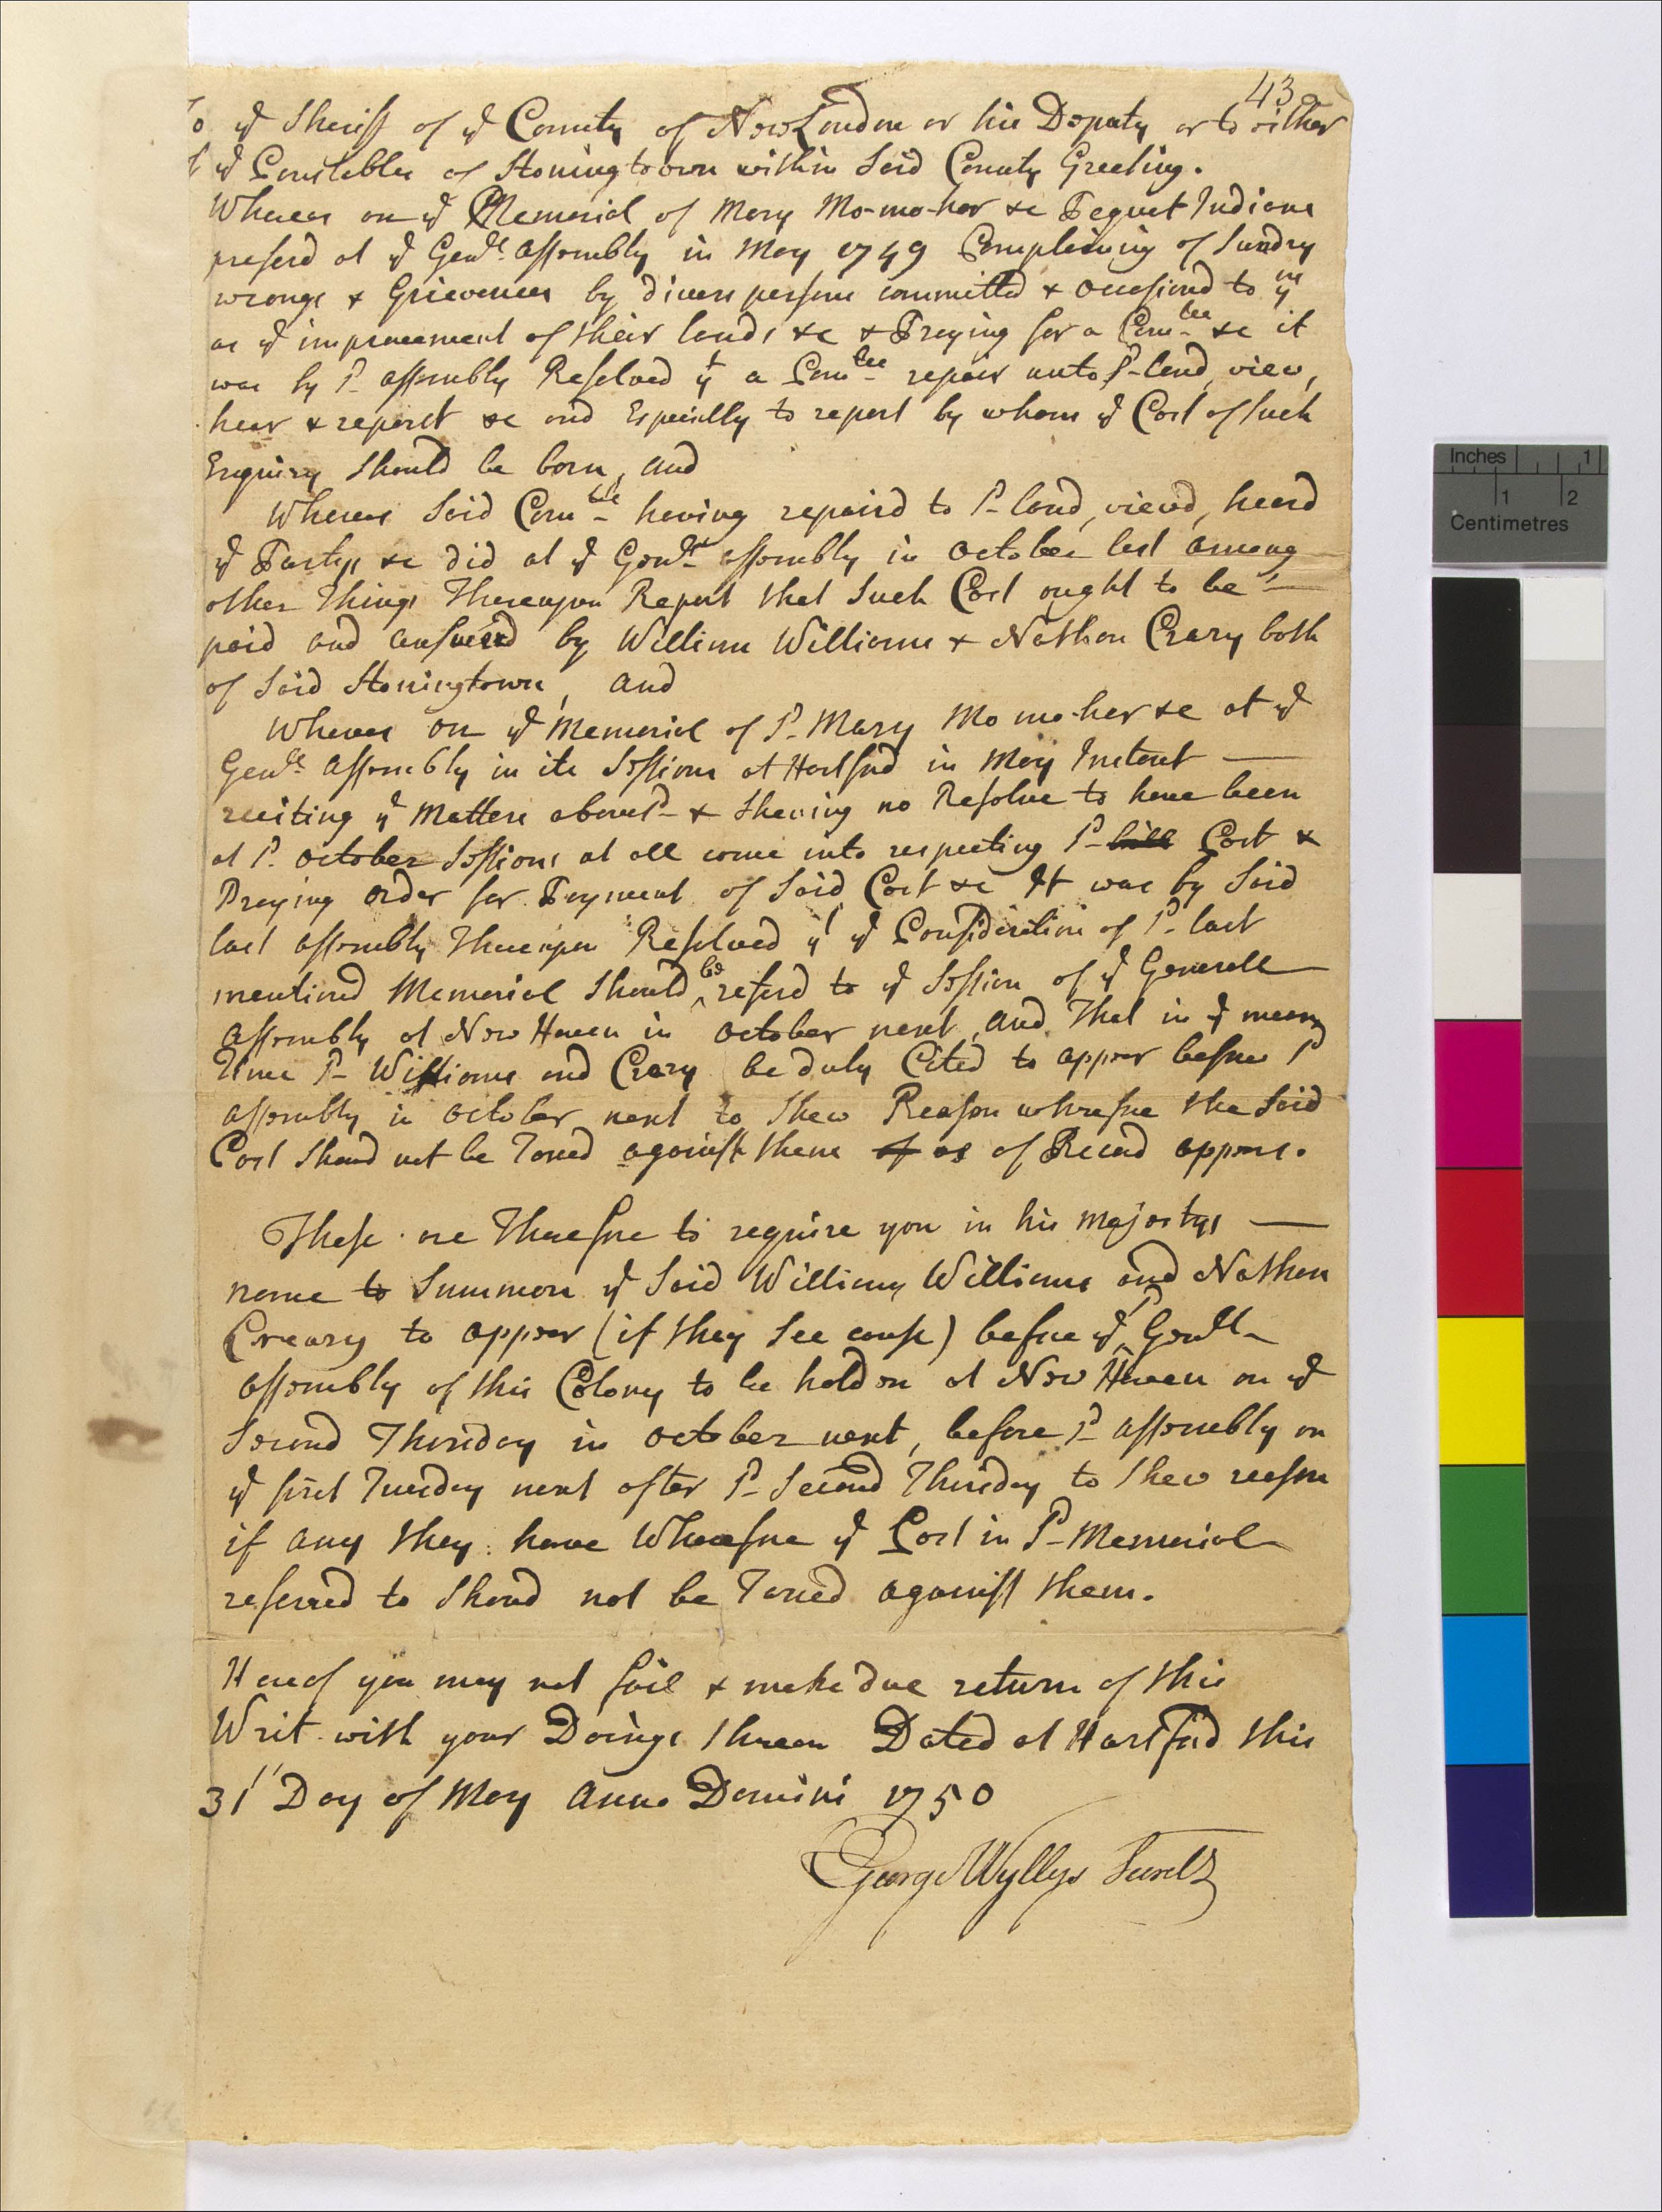 43
To ye Sheriff of ye County of New London or his Deputy or to either
of ye Constables of Stoningtown within Said County Greeting.
Whereas on ye Memorial of Mary Mo-mo-hor &c Pequet Indians
preferd at ye Genll. Assembly in May 1749 Complaining of Sundry
wrongs & Grievences by divers persons committed & occasiond to ym
as ye improvement of their lands &c & Praying for a Comtee &c it
was by sd Assembly Resolved yt a Comtee repair unto sd land, view,
hear & report &c and Especially to report by whom ye Cost of such
Enquiry Should be born, and
Whereas Said Comtee having repaird to sd land, viewd, heard
ye Partys &c did at ye Genll Assembly in October last among
other Things Thereupon Report that Such Cost ought to be
paid and answerd by William Williams & Nathan Crary both
of Said Stoningtown, and
Whereas on ye Memorial of sd Mary Mo mo-her &c at ye
Genll Assembly in its Sessions at Hartford in May Instant
reciting ye Matters abovesd & Shewing no Resolve to have been
at sd October Sessions at all come into respecting sd bill Cost &
Praying order for Payment of Said Cost &c It was by Said
last Assembly Thereupon Resolved yt ye Consideration of sd last
mentioned Memorial Should be referd to ye Session of ye Generall
Assembly at New Haven in October next, and That in ye mean
Time sd Williams and Crary be duly Cited to appear before sd
Assembly in October next to Shew Reason wherefore the Said
Cost Shoud not be Taxed against them of as of Record appears.
These are Therefore to require you in his Majestys
name to Summon ye Said William Williams and Nathan
Creary to appear (if they See cause) before ye sd Genll
Assembly of this Colony to be holden at New Haven on ye
Second Thursday in October next, before sd Assembly on
ye first Tuesday next after sd Second Thursday to Shew reason
if any they have Wherefore ye Cost in sd Memorial
referred to Shoud not be Taxed against them.
Hereof you may not fail & make due return of this
Writ with your Doings thereon Dated at Hartford this
31st Day of May Anno Domini 1750
George Wyllys Secrety
Inches 1
1 2
Centimetres